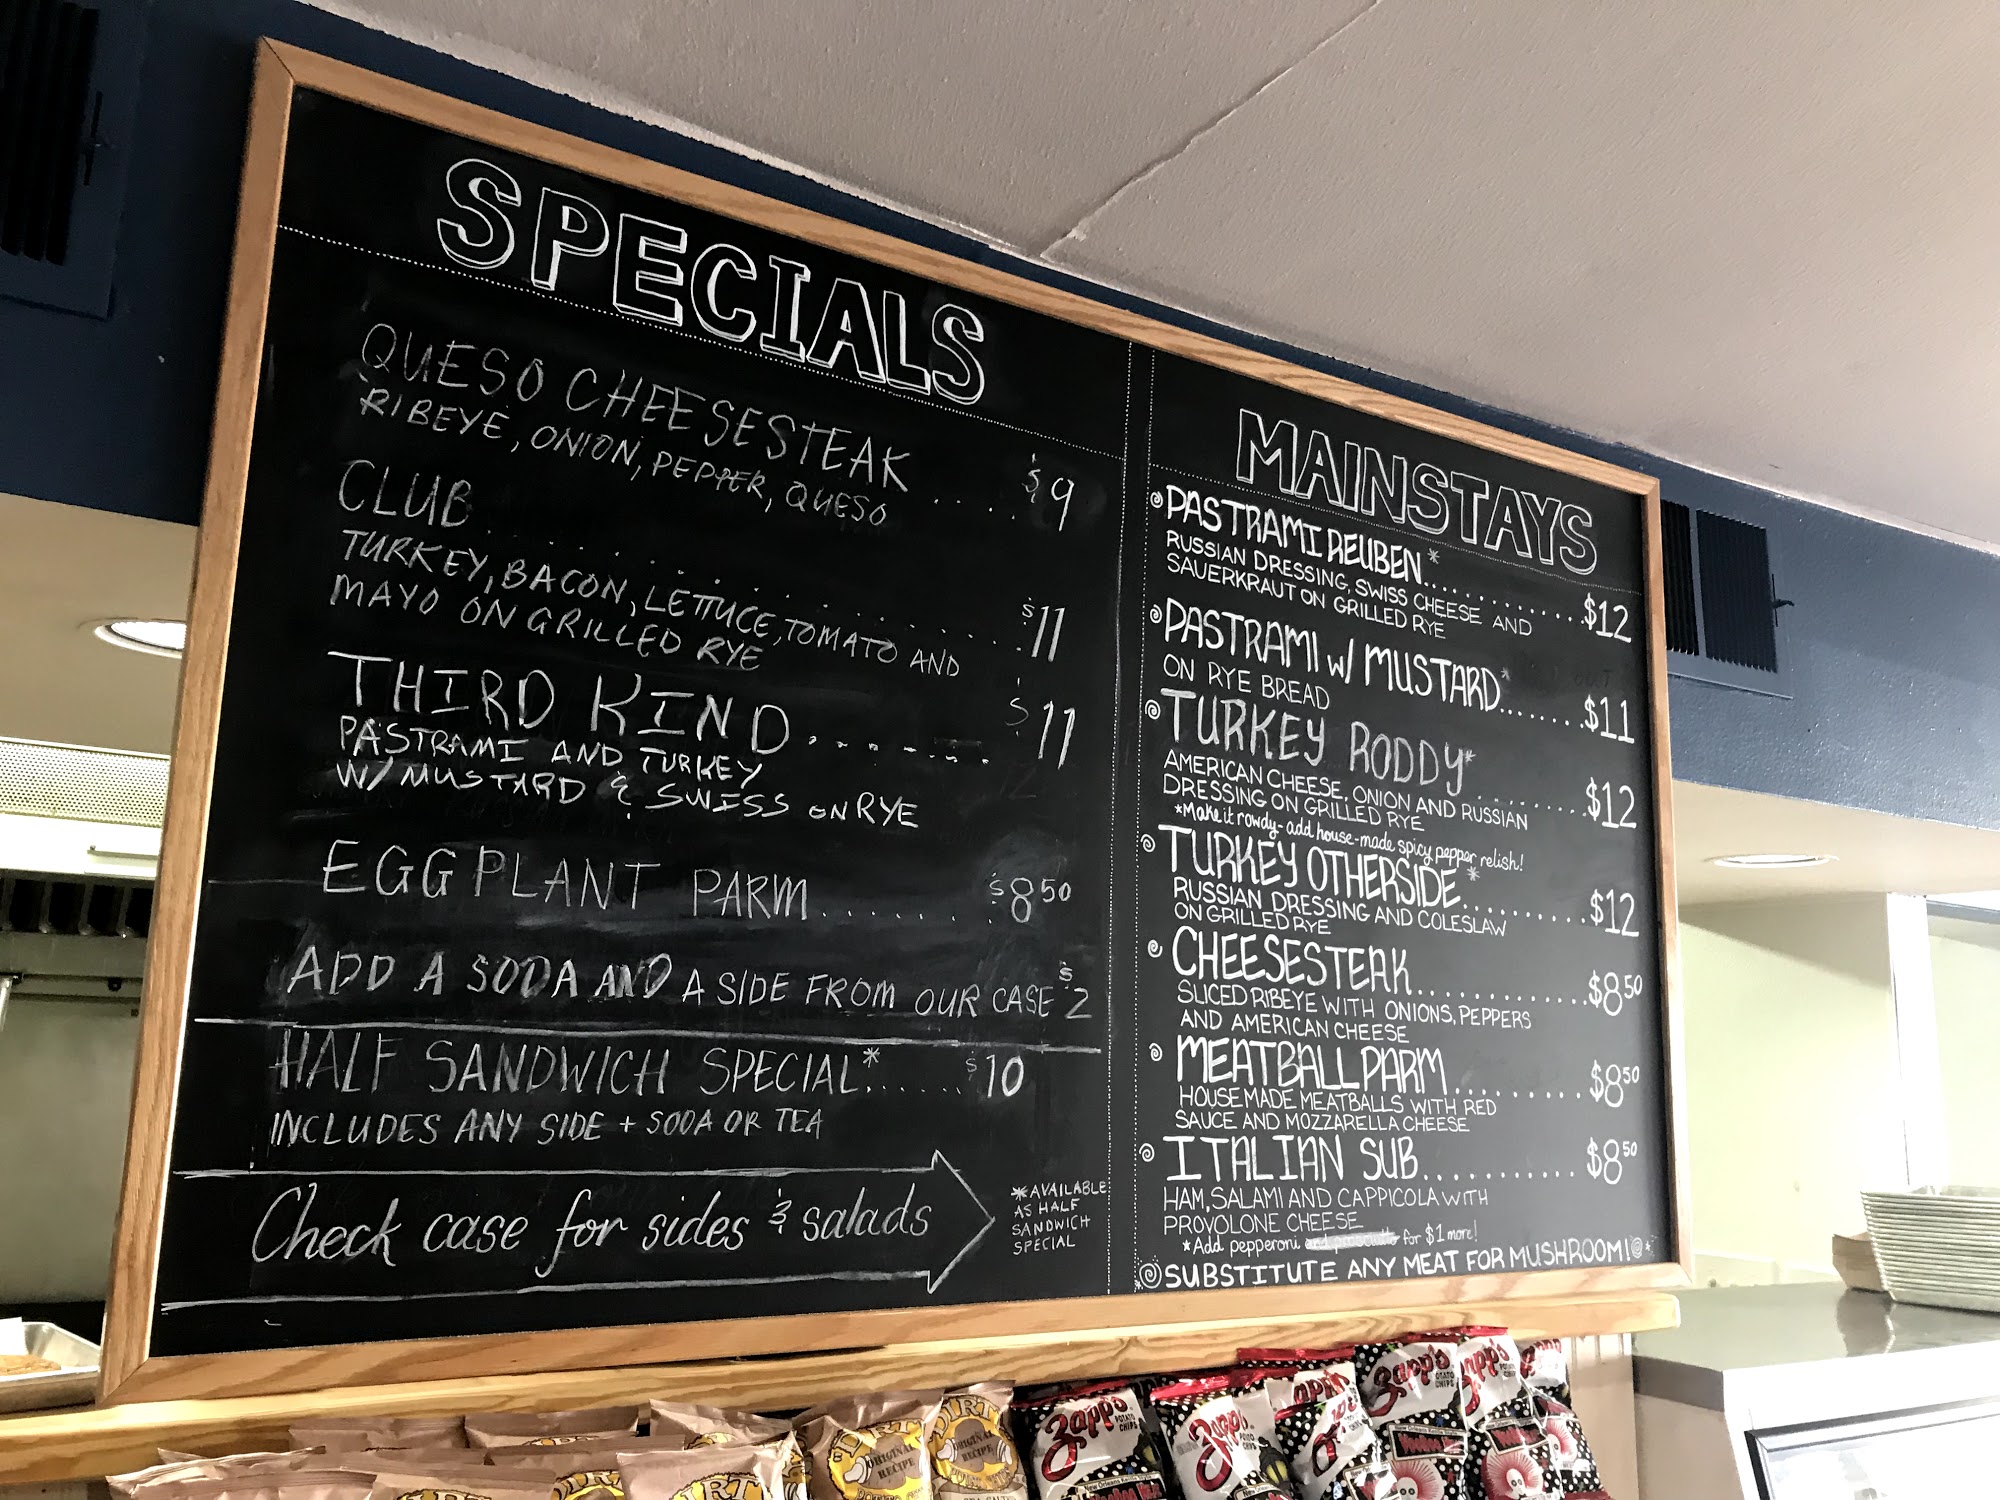 SPECIALS
QUESO CHEESESTEAK .... $9
RIBEYE, ONION, PEPPER, QUESO
CLUB .............. $11
TURKEY, BACON, LETTUCE, TOMATO AND
MAYO ON GRILLED RYE
THIRD KIND ........ $11
PASTRAMI AND TURKEY
W/ MUSTARD & SWISS ON RYE
EGGPLANT PARM ....... $8.50
ADD A SODA AND A SIDE FROM OUR CASE $2
HALF SANDWICH SPECIAL* ...... $10
INCLUDES ANY SIDE + SODA OR TEA
Check case for sides & salads
*AVAILABLE
AS HALF
SANDWICH
SPECIAL
MAINSTAYS
PASTRAMI REUBEN* ............ $12
RUSSIAN DRESSING, SWISS CHEESE AND
SAUERKRAUT ON GRILLED RYE
PASTRAMI W/ MUSTARD* ....... $11
ON RYE BREAD
TURKEY RODDY* ........ $12
AMERICAN CHEESE, ONION AND RUSSIAN
DRESSING ON GRILLED RYE
*Make it rowdy - add house-made spicy pepper relish!
TURKEY OTHERSIDE* .......... $12
RUSSIAN DRESSING AND COLESLAW
ON GRILLED RYE
CHEESESTEAK ............. $8.50
SLICED RIBEYE WITH ONIONS, PEPPERS
AND AMERICAN CHEESE
MEATBALL PARM .......... $8.50
HOUSEMADE MEATBALLS WITH RED
SAUCE AND MOZZARELLA CHEESE
ITALIAN SUB ............ $8.50
HAM, SALAMI AND CAPPICOLA WITH
PROVOLONE CHEESE
*Add pepperoni and prosciutto for $1 more!
SUBSTITUTE ANY MEAT FOR MUSHROOM!
DIRTY
ORIGINAL
RECIPE
POTATO
DIRTY
ORIGINAL
RECIPE
Zapp's
POTATO
CHIPS
New Orleans Kettle Style
Zapp's
Zapp's
Zapp's
POTATO
CHIPS
VOODOO
Zapp's